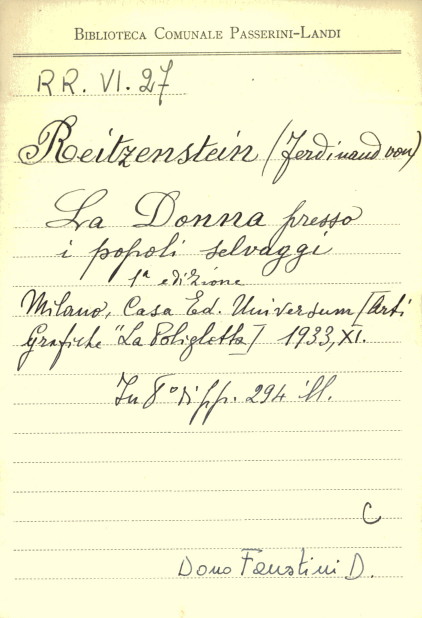 BIBLIOTECA COMUNALE PASSERINI-LANDI
RR. VI. 27
Reitzenstein (Ferdinand von)
La Donna presso
i popoli selvaggi
1ª edizione
Milano, Casa Ed. Universum [Arti
Grafiche "La Poliglotta] 1933, XI.
In 8° di pp. 294 ill.
C
Dono Faustini D.